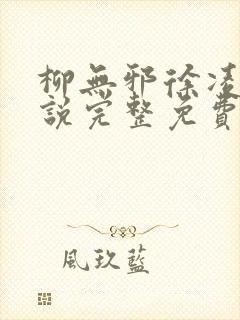 柳無邪徐凌
說完整免費
風玖藍